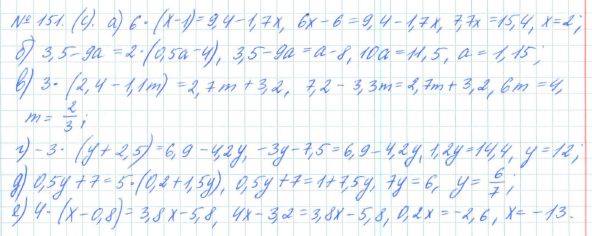 № 151. (С). а) 6·(x-1)=9,4-1,7x, 6x-6=9,4-1,7x, 7,7x=15,4, x=2;
б) 3,5-9a=2·(0,5a-4), 3,5-9a=a-8, 10a=11,5, a=1,15;
в) 3·(2,4-1,1m)=2,7m+3,2, 7,2-3,3m=2,7m+3,2, 6m=4,
m=2/3;
г) -3·(y+2,5)=6,9-4,2y, -3y-7,5=6,9-4,2y, 1,2y=14,4, y=12;
д) 0,5y+7=5·(0,2+1,5y), 0,5y+7=1+7,5y, 7y=6, y=6/7;
е) 4·(x-0,8)=3,8x-5,8, 4x-3,2=3,8x-5,8, 0,2x=-2,6, x=-13.